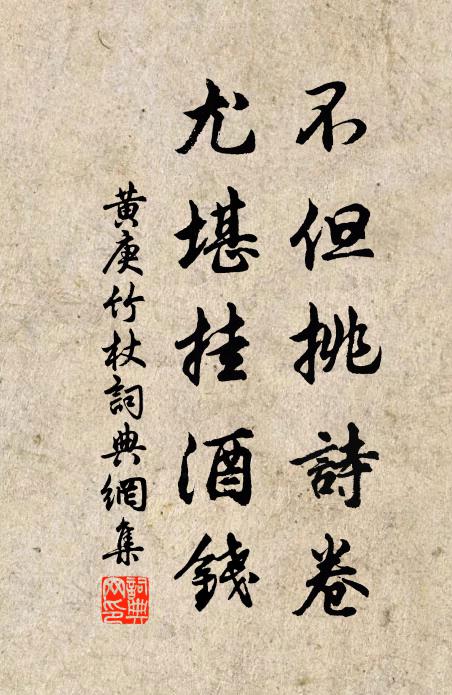 不但挑詩卷
尤堪挂酒錢
黄庚竹杖詞典網集
詞典网印